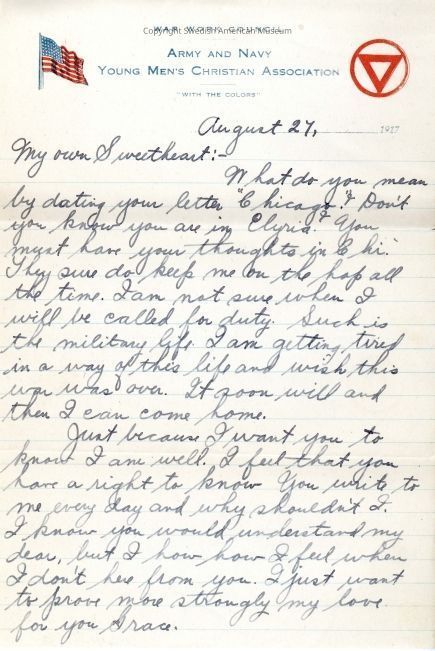 WAR WORK COUNCIL
Copyright Swedish American Museum
ARMY AND NAVY
YOUNG MEN'S CHRISTIAN ASSOCIATION
"WITH THE COLORS"
August 27, 1917
My own Sweetheart:-
What do you mean
by dating your letter "Chicago"? Don't
you know you are in Elyria? You
must have your thoughts in Chi.
They sure do keep me on the hop all
the time. I am not sure when I
will be called for duty. Such is
the military life. I am getting tired
in a way of this life and wish this
war was over. It soon will and
then I can come home.
Just because I want you to
know I am well. I feel that you
have a right to know. You write to
me every day and why shouldn't I.
I know you would understand my
dear, but I how how I feel when
I don't here from you. I just want
to prove more strongly my love
for you Grace.